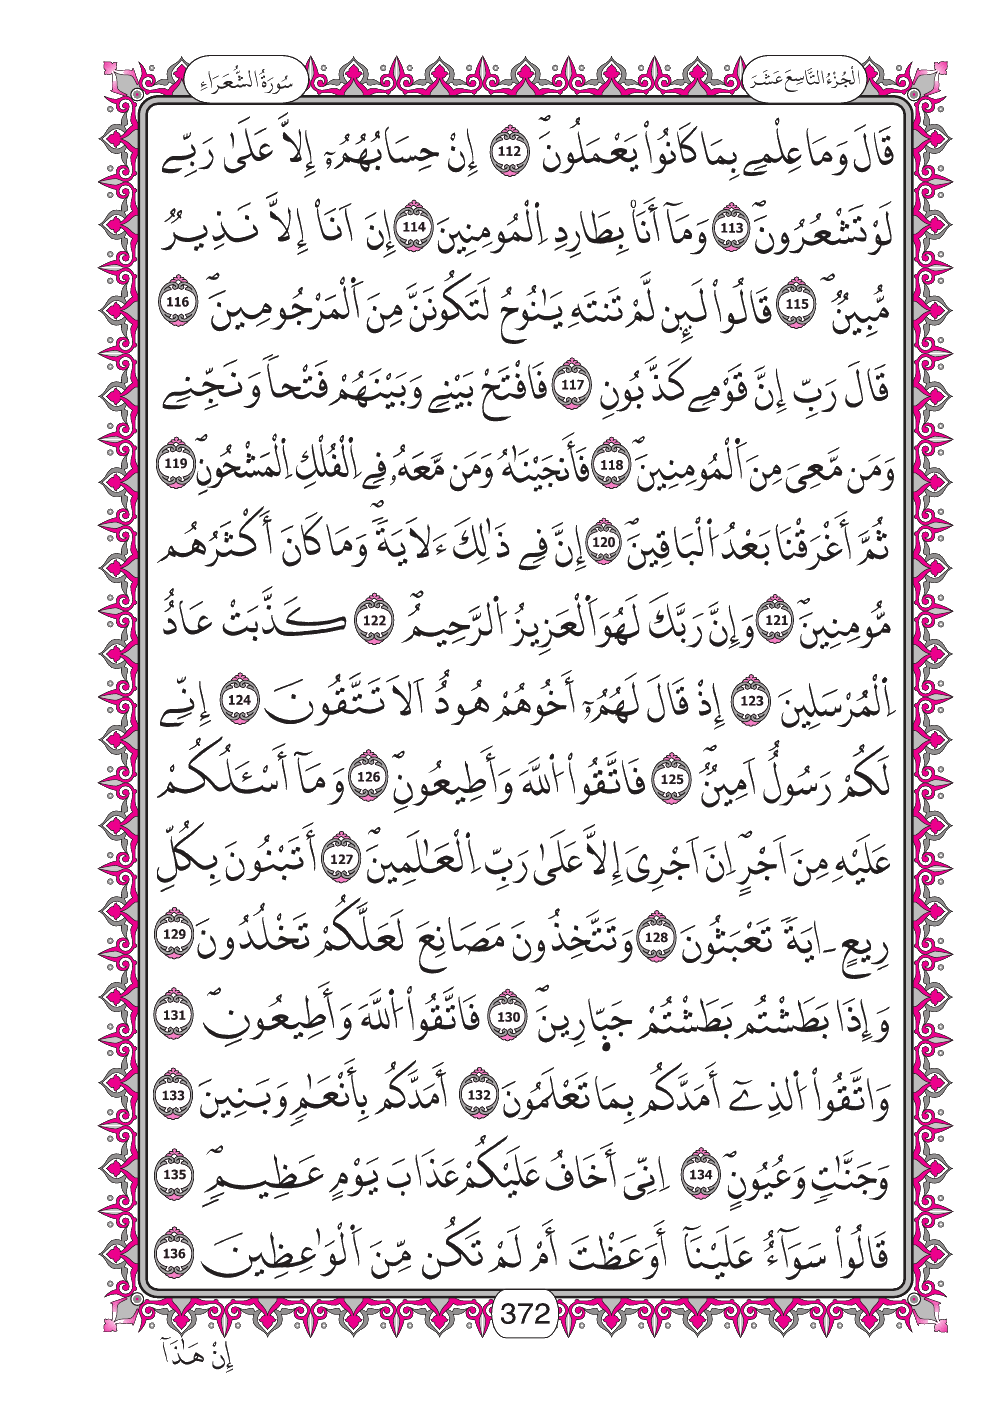 الْجُزْءُ التَّاسِعَ عَشَرَ
سُورَةُ الشُّعَرَاءِ
قَالَ وَمَا عِلْمِے بِمَا كَانُواْ يَعْمَلُونَۖ 112 إِنْ حِسَابُهُمُۥٓ إِلَّا عَلَىٰ رَبِّے
لَوْ تَشْعُرُونَۖ 113 وَمَآ أَنَا۠ بِطَارِدِ اِ۬لْمُومِنِينَ 114 إِنَ اَنَا۠ إِلَّا نَذِيرٞ
مُّبِينٞۖ 115 قَالُواْ لَئِن لَّمْ تَنتَهِ يَٰنُوحُ لَتَكُونَنَّ مِنَ اَ۬لْمَرْجُومِينَۖ 116
قَالَ رَبِّ إِنَّ قَوْمِے كَذَّبُونِ 117 فَافْتَحْ بَيْنِے وَبَيْنَهُمْ فَتْحاٗ وَنَجِّنِے
وَمَن مَّعِيَ مِنَ اَ۬لْمُومِنِينَۖ 118 فَأَنجَيْنَٰهُ وَمَن مَّعَهُۥ فِے اِ۬لْفُلْكِ اِ۬لْمَشْحُونِۖ 119
ثُمَّ أَغْرَقْنَا بَعْدُ اُ۬لْبَاقِينَۖ 120 إِنَّ فِے ذَٰلِكَ ءَلَايَةٗۖ وَمَا كَانَ أَكْثَرُهُم
مُّومِنِينَۖ 121 وَإِنَّ رَبَّكَ لَهُوَ اَ۬لْعَزِيزُ اُ۬لرَّحِيمُۖ 122 كَذَّبَتْ عَادٌ
اِ۬لْمُرْسَلِينَ 123 إِذْ قَالَ لَهُمُۥٓ أَخُوهُمْ هُودٌ اَلَا تَتَّقُونَ 124 إِنِّے
لَكُمْ رَسُولٌ اَمِينٞۖ 125 فَاتَّقُواْ اُ۬للَّهَ وَأَطِيعُونِۖ 126 وَمَآ أَسْـَٔلُكُمْ
عَلَيْهِ مِنَ اَجْرٍۖ اِنَ اَجْرِيَ إِلَّا عَلَىٰ رَبِّ اِ۬لْعَٰلَمِينَۖ 127 أَتَبْنُونَ بِكُلِّ
رِيعٍ ـ اٰيَةٗ تَعْبَثُونَ 128 وَتَتَّخِذُونَ مَصَانِعَ لَعَلَّكُمْ تَخْلُدُونَ 129
وَإِذَا بَطَشْتُم بَطَشْتُمْ جَبّ۪ارِينَۖ 130 فَاتَّقُواْ اُ۬للَّهَ وَأَطِيعُونِۖ 131
وَاتَّقُواْ اُ۬لذِےٓ أَمَدَّكُم بِمَا تَعْلَمُونَ 132 أَمَدَّكُم بِأَنْعَٰمٖ وَبَنِينَ 133
وَجَنَّٰتٖ وَعُيُونٍۖ 134 اِنِّيَ أَخَافُ عَلَيْكُمْ عَذَابَ يَوْمٍ عَظِيمٖۖ 135
قَالُواْ سَوَآءٌ عَلَيْنَآ أَوَعَظْتَ أَمْ لَمْ تَكُن مِّنَ اَ۬لْوَٰعِظِينَ 136
372
إِنْ هَٰذَآ